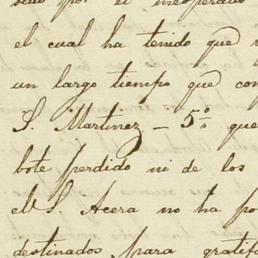 por el inesperado
el cual ha tenido que
un largo tiempo que con
S. Martinez - 5º que
bote perdido ni de los
el S Acera no ha po
destinados para gratifi